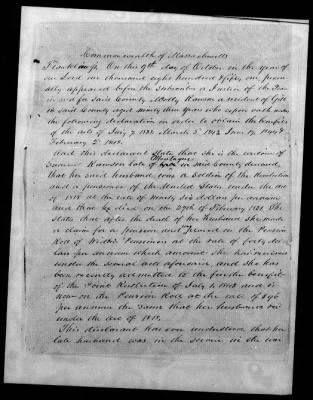 Commonwealth of Massachusetts
Franklin ss. On this 9th day of October in the year of
our Lord one thousand eight hundred & fifty one per
ally appeared before the Subscriber a Justice of the Pea
in and for said County Molly Ranson a resident of Gill
in said County aged ninety three years who upon oath makes
the following declaration in order to obtain the benefits
of the acts of July 7 1838 March 3 1843 June 17 1844 &
February 2 1848.
And this declarant states that she is the widow of
Ranson late of Montague in said County deceased,
that her said husband was a Soldier of the Revolution
and a pensioner of the United States under the act
of 1818 at the rate of ninety six dollars per annum
and that he died on the 29th of February 1831. She
states that after the death of her Husband She made
a claim for a pension and placed on the Pension
Roll of Widows Pensioners at the rate of forty dol-
lars per annum which amount she has received
under the several acts aforesaid and she has
been recently admitted to the further benefit
of the Joint Resolution of July 1, 1848 and is
now on the Pension Roll at the rate of $96
per annum the same that her husband recd
under the act of 1818.
This declarant has ever understood that her
late husband was in the service in the war